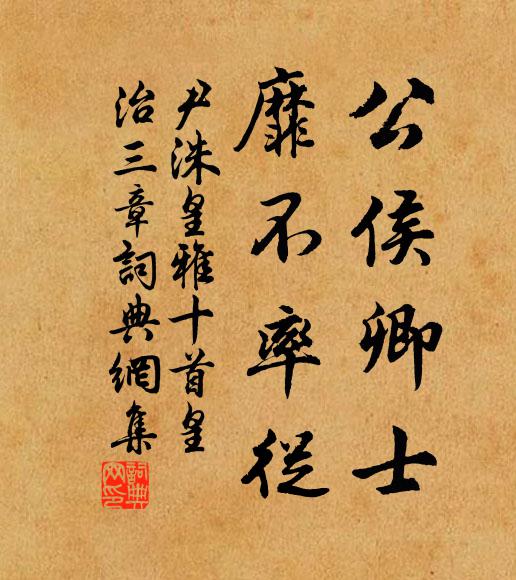 公侯卿士
靡不率從
尹洙皇雅十首皇
治三章詞典網集
詞典
网印